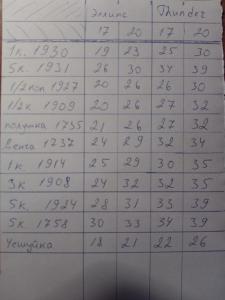 Эллипс Thunder
17 20 17 20
1к. 1930 19 23 25 30
5к. 1931 26 30 34 39
1/2коп 1927 20 26 26 30
1/2к 1909 20 26 27 32
полушка 1735 21 26 27 32
Денга 1737 24 29 32 34
1к 1914 25 29 30 35
3к 1908 24 32 32 35
5к. 1924 28 31 33 39
5к 1758 30 33 34 39
Чешуйка 18 21 22 26